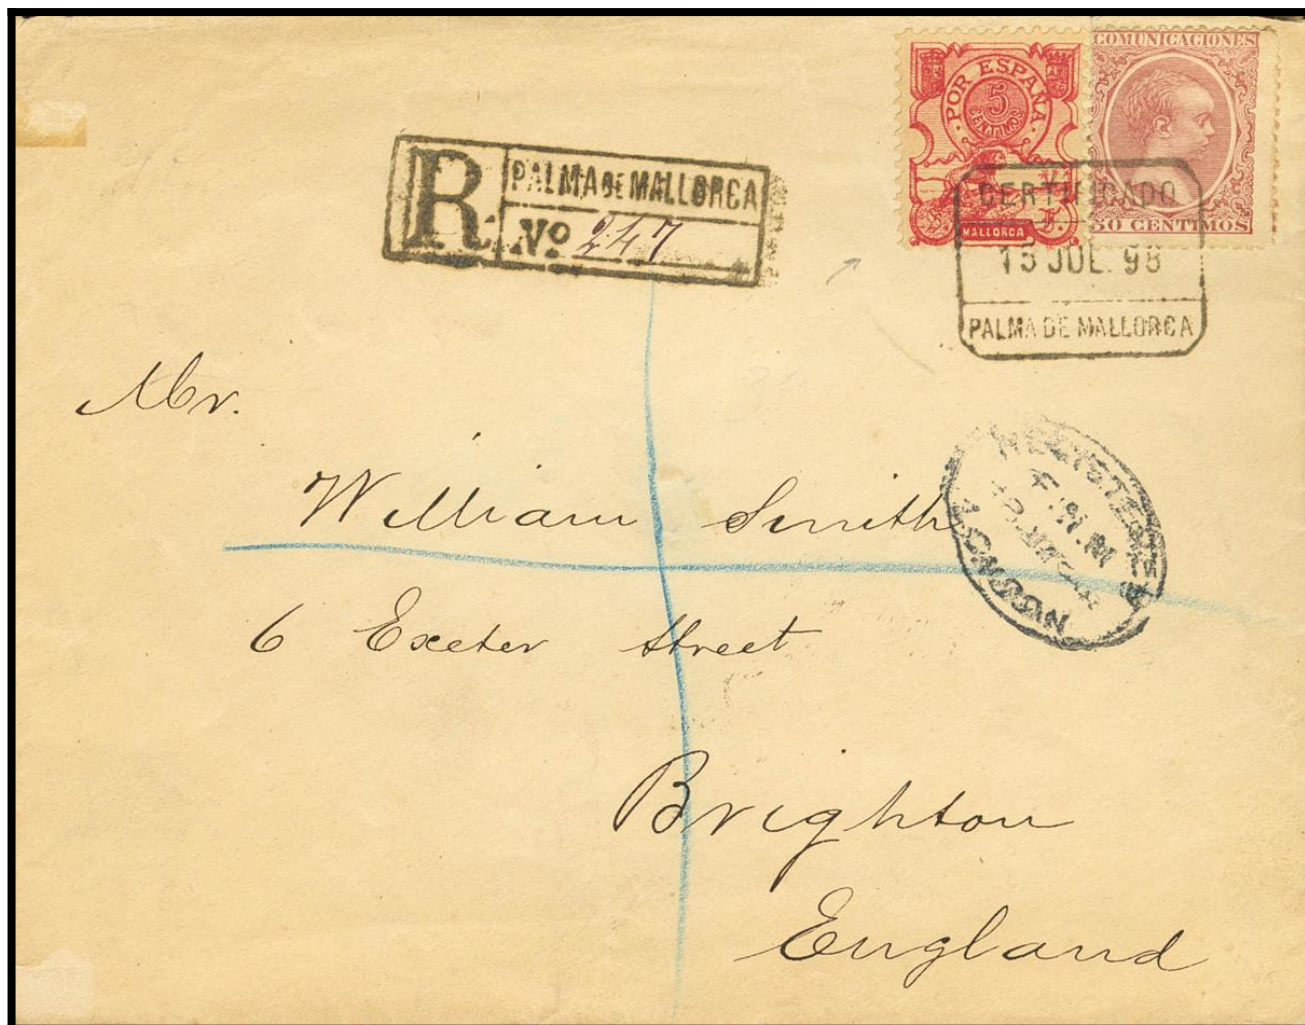 POR ESPAÑA
5
CENTIMOS
MALLORCA
COMUNICACIONES
50 CENTIMOS
R
PALMA DE MALLORCA
Nº 247
CERTIFICADO
15 JUL. 98
PALMA DE MALLORCA
Mr.
William Smith
6 Exeter Street
Brighton
England
REGISTERED
LONDON